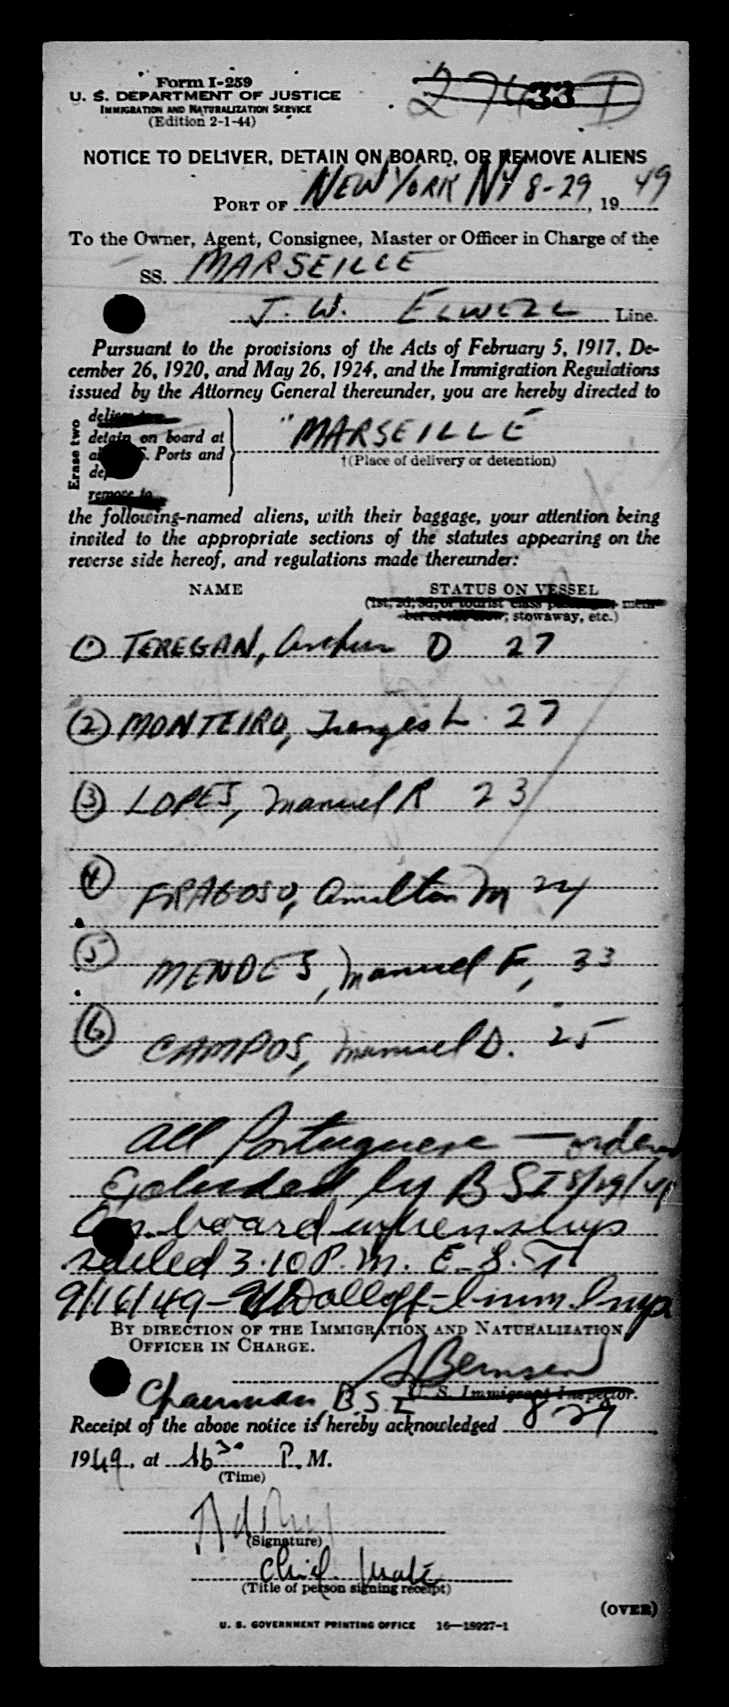 Form I-259
U. S. DEPARTMENT OF JUSTICE
IMMIGRATION AND NATURALIZATION SERVICE
(Edition 2-1-44)
33 D
NOTICE TO DELIVER, DETAIN ON BOARD, OR REMOVE ALIENS
PORT OF NEW YORK NY 8-29, 19 49
To the Owner, Agent, Consignee, Master or Officer in Charge of the
SS. MARSEILLE
J. W. ELWELL Line.
Pursuant to the provisions of the Acts of February 5, 1917, De-
cember 26, 1920, and May 26, 1924, and the Immigration Regulations
issued by the Attorney General thereunder, you are hereby directed to
Erase two
detain on board at
Ports and
remove to
"MARSEILLE
†(Place of delivery or detention)
the following-named aliens, with their baggage, your attention being
invited to the appropriate sections of the statutes appearing on the
reverse side hereof, and regulations made thereunder:
NAME STATUS ON VESSEL
(1st, 2d, 3d, or tourist class passenger, mem-
ber of the crew, stowaway, etc.)
① TEREGAN, Arthur D 27
② MONTEIRO, L. 27
③ LOPES, Manuel R 23
④ FRAGOSO, Amilton M 24
⑤ MENDES, Manuel F, 33
⑥ CAMPOS, Manuel D. 25
All Portuguese — ordered
Excluded by BSI 8/29/49
On board when ships
sailed 3:10 P.M. E.S.T.
9/16/49 - Dolloff - Imm. Insp
BY DIRECTION OF THE IMMIGRATION AND NATURALIZATION
OFFICER IN CHARGE.
Chairman B.S.I. U. S. Immigrant Inspector.
Receipt of the above notice is hereby acknowledged 8-29
1949, at P. M.
(Time)
(Signature)
Chief mate
(Title of person signing receipt)
(OVER)
U. S. GOVERNMENT PRINTING OFFICE 16—18927-1